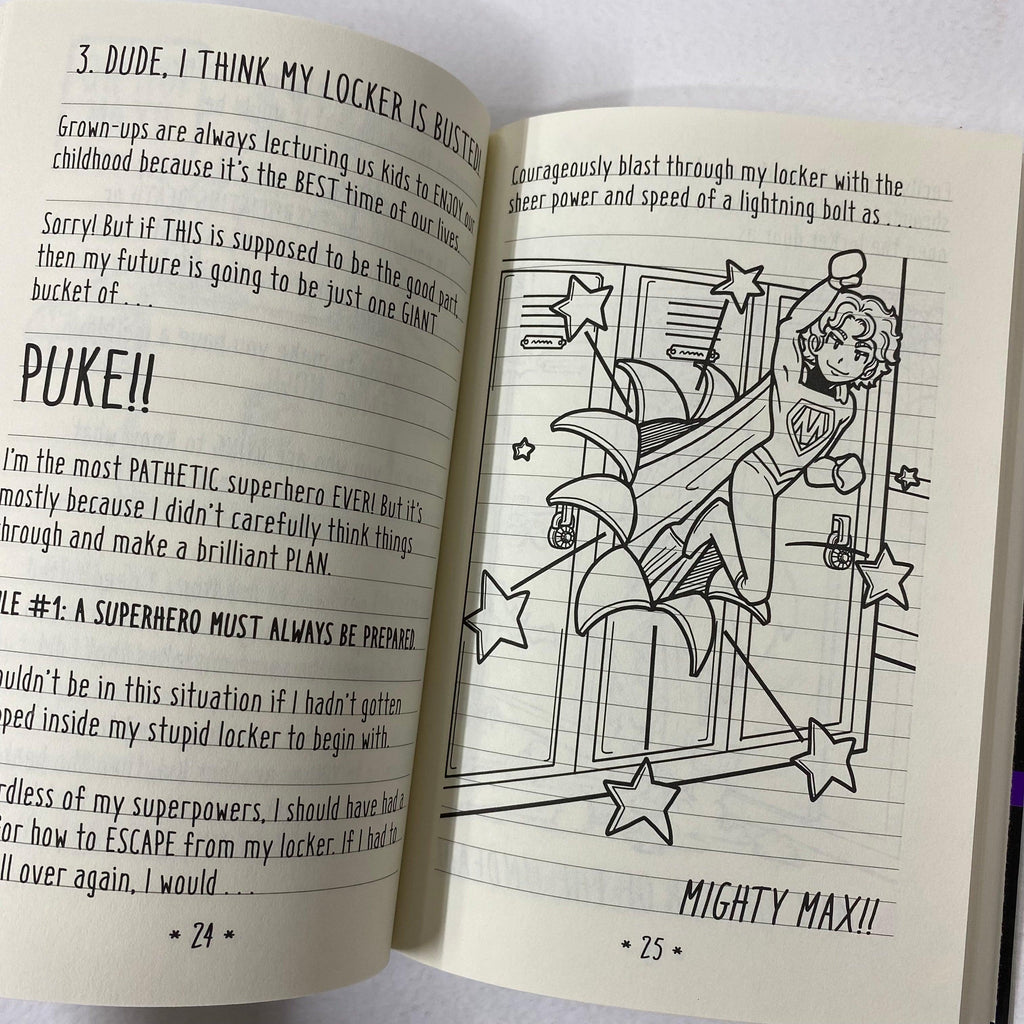 3. DUDE, I THINK MY LOCKER IS BUSTED!
Grown-ups are always lecturing us kids to ENJOY our
childhood because it's the BEST time of our lives.
Sorry! But if THIS is supposed to be the good part,
then my future is going to be just one GIANT
bucket of . . .
PUKE!!
I'm the most PATHETIC superhero EVER! But it's
mostly because I didn't carefully think things
through and make a brilliant PLAN.
#1: A SUPERHERO MUST ALWAYS BE PREPARED.
be in this situation if I hadn't gotten
inside my stupid locker to begin with.
of my superpowers, I should have had a
for how to ESCAPE from my locker. If I had to
all over again, I would . . .
* 24 *
Courageously blast through my locker with the
sheer power and speed of a lightning bolt as . . .
M
MIGHTY MAX!!
* 25 *